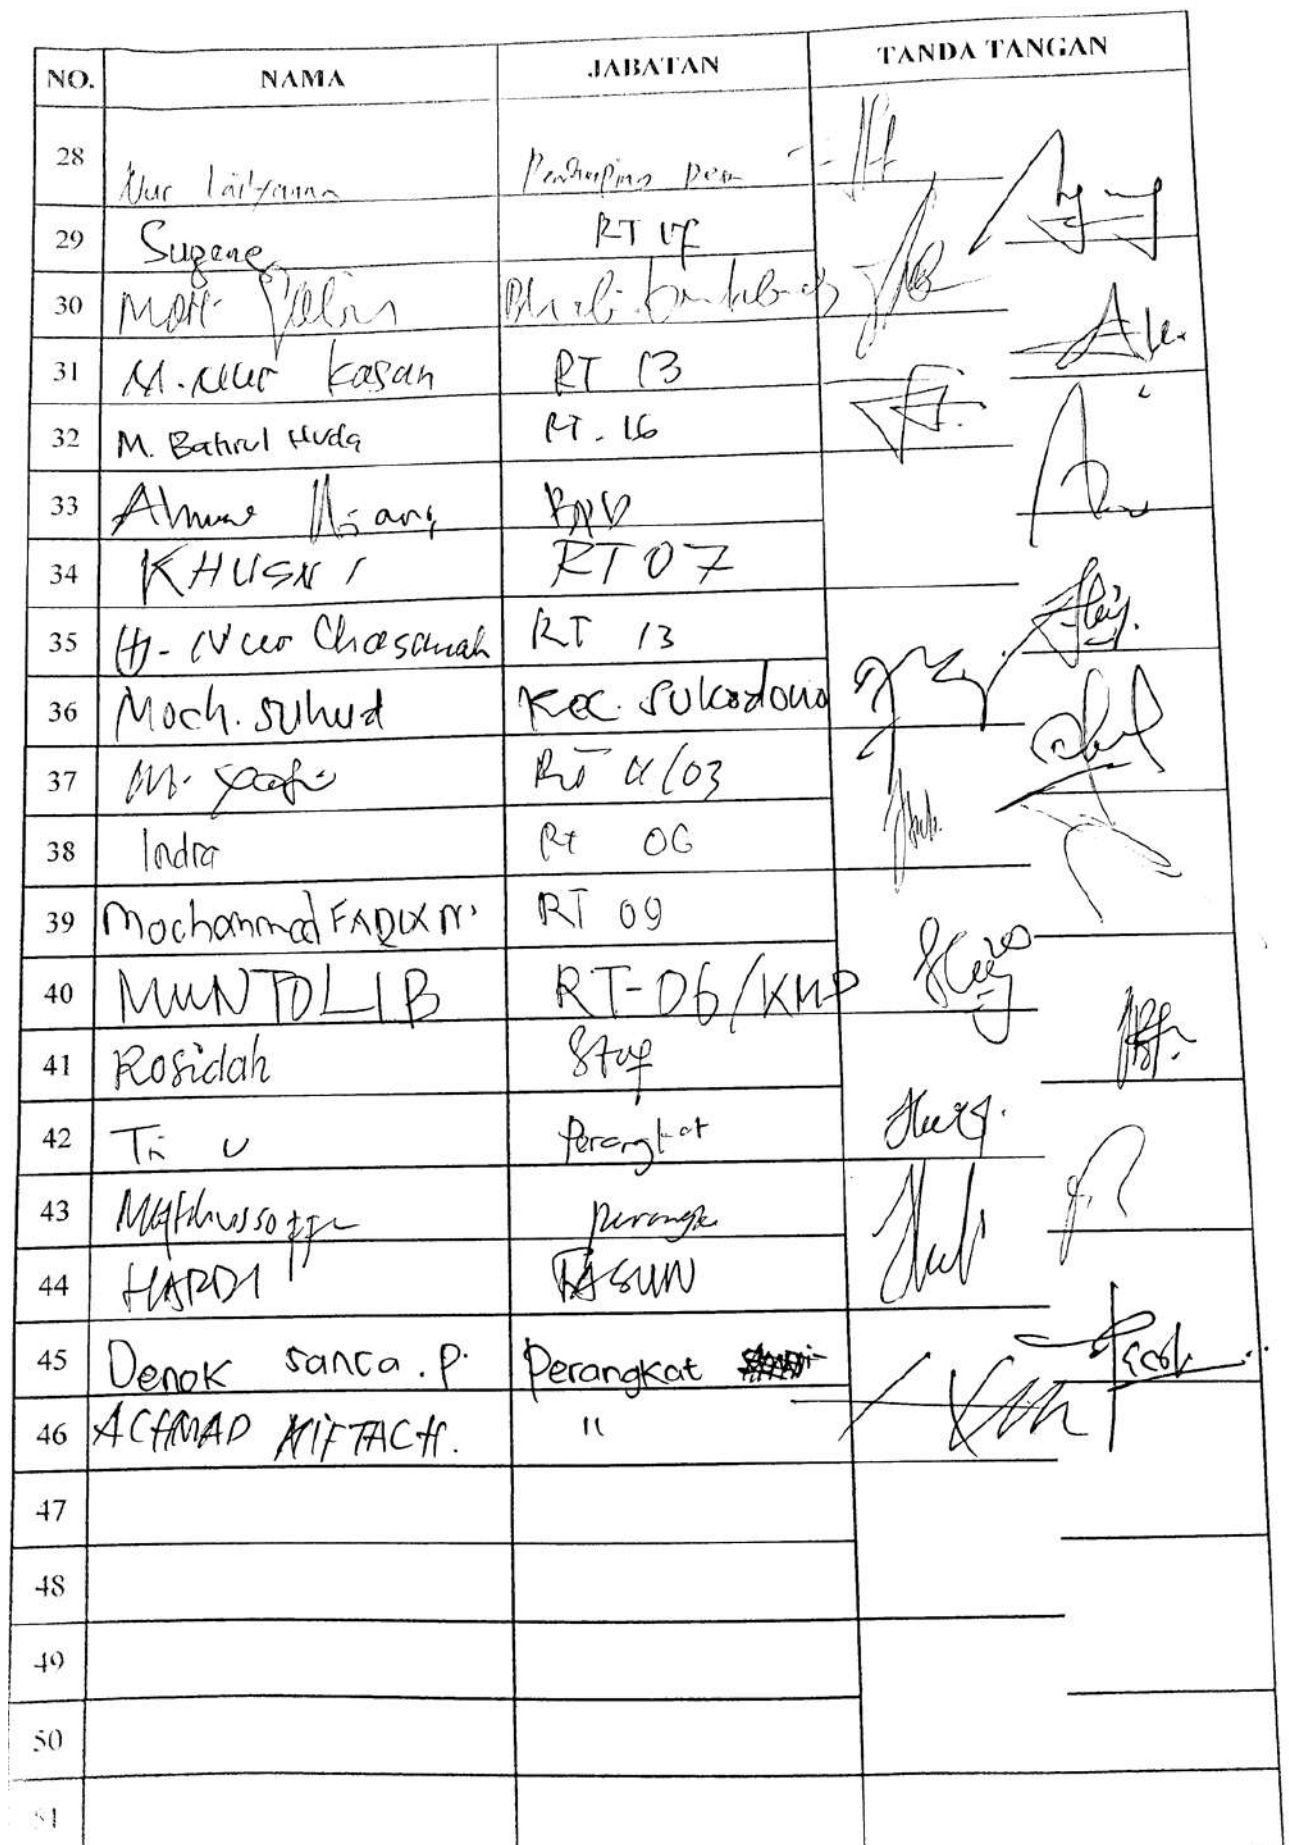 NO. NAMA JABATAN TANDA TANGAN
28 Nur
29 Sugeng RT 17
30 MOH.
31 M. Nur Kasan RT 13
32 M. Bahrul Huda RT. 16
33 BPD
34 KHUSNI RT 07
35 Hj. Nur Chasanah RT 13
36 Moch. Suhud Kec. Sukodono
37 M. RT 11/03
38 Indra Rt 06
39 Mochammad RT 09
40 MUNTOLIB RT-06/KMP
41 Rosidah Staf
42 Tri U Perangkat
43 perangkat
44 HARDI KASUN
45 Denok sanca . P. Perangkat
46 ACHMAD MIFTACH. "
47
48
49
50
51